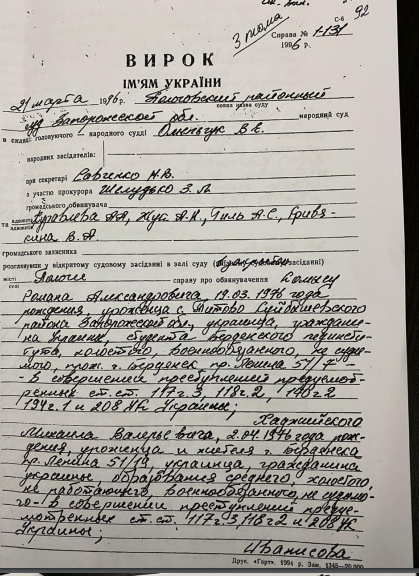 С-6
92
3 тома
Справа № 1-131
1996 р.
ВИРОК
ІМ'ЯМ УКРАЇНИ
21 марта 1996 р. Пологовский районный
повна назва суду
суд Запорожской обл. народний суд
в складі головуючого народного судді Омельчук В.Е.
народних засідателів:
при секретарі Савченко Н.В.
з участю прокурора Шелудько З.Л.
громадського обвинувача
та адвокатів Журавлева А.А., Жук А.Н., Гиль А.С., Кривя-
кина В.А.
громадського захисника
розглянувши у відкритому судовому засіданні в залі суду засіданні)
місті Пологи справу по обвинуваченню
селі
Романа Александровича, 19.03.1976 года
рождения, уроженца с. Куйбышевского
района Запорожской обл., украинца, граждани-
на Украины, студента Бердянского пединсти-
тута, холостого, военнообязанного, не суди-
мого, прож. г. Бердянск пр. Ленина 51/
- в совершении преступлений предусмот-
ренных ст.ст. 117 ч.3, 118 ч.2, 140 ч.2
194 ч.1 и 208 УК Украины;
Хаджийского
Михаила Валерьевича, 2.04.1976 года рож-
дения, уроженца и жителя г. Бердянска
пр. Ленина 51/19, украинца, гражданина
Украины, образования среднего, холостого,
не работающего, военнообязанного, не судимо-
го - в совершении преступлений преду-
смотренных ст.ст. 117 ч.3, 118 ч.2 и 208 УК
Украины;
Иванисова
Друк. «Горт». 1994 р. Зам. 1245—20.000